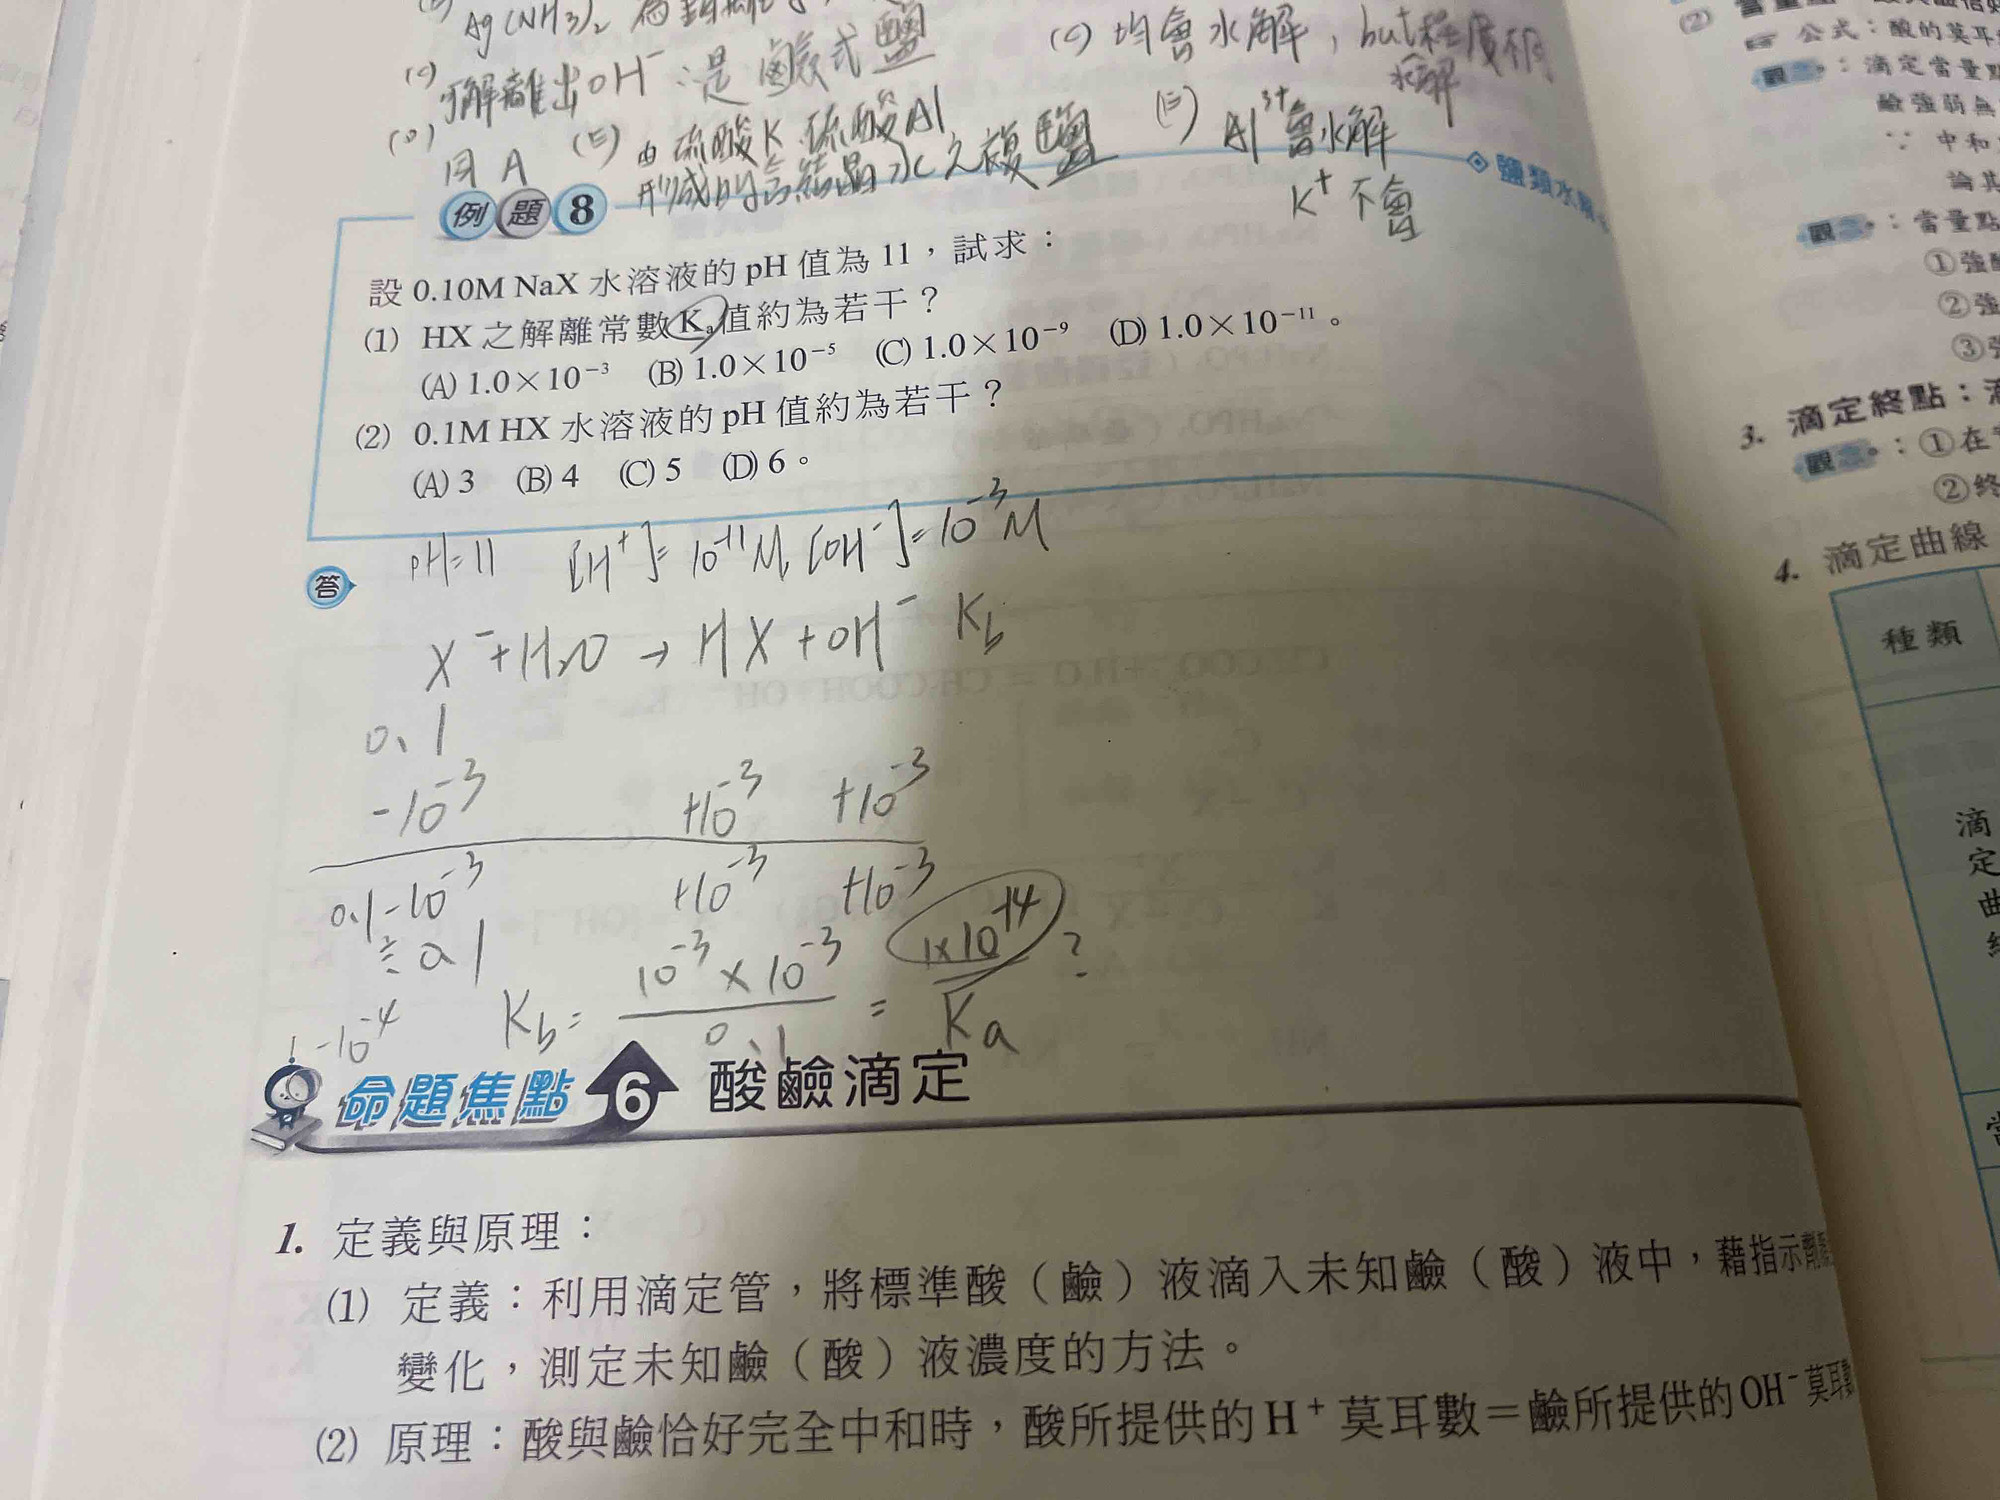 Ag(NH3)2 為
(C) 可解離出OH⁻ ∴是鹼式鹽
(D) 同A
(E) 由硫酸K、硫酸Al
形成的含結晶水之複鹽
(C) 均會水解, but程度不同
水解
(E) Al³⁺會水解
K⁺不會
例題8
鹽類水解
設 0.10M NaX 水溶液的 pH 值為 11,試求:
(1) HX 之解離常數 Kₐ 值約為若干?
(A) 1.0×10⁻³ (B) 1.0×10⁻⁵ (C) 1.0×10⁻⁹ (D) 1.0×10⁻¹¹。
(2) 0.1M HX 水溶液的 pH 值約為若干?
(A) 3 (B) 4 (C) 5 (D) 6。
答
pH=11 [H⁺]=10⁻¹¹M, [OH⁻]=10⁻³M
X⁻+H₂O → HX+OH⁻ Kb
0.1
-10⁻³ +10⁻³ +10⁻³
0.1-10⁻³ +10⁻³ +10⁻³
≒0.1
Kb = 10⁻³×10⁻³ / 0.1 = 1×10⁻¹⁴ / Ka ?
1-10⁻⁴
命題焦點 6 酸鹼滴定
1. 定義與原理:
(1) 定義:利用滴定管,將標準酸(鹼)液滴入未知鹼(酸)液中,藉指示劑
變化,測定未知鹼(酸)液濃度的方法。
(2) 原理:酸與鹼恰好完全中和時,酸所提供的 H⁺ 莫耳數=鹼所提供的 OH⁻ 莫耳數
(2)
公式:酸的莫耳
觀念:滴定當量點
鹼強弱無
∵中和
論其
觀念:當量點
①強酸
②強
③強
3. 滴定終點:滴
觀念:①在
②終
4. 滴定曲線
種類
滴定曲線
當